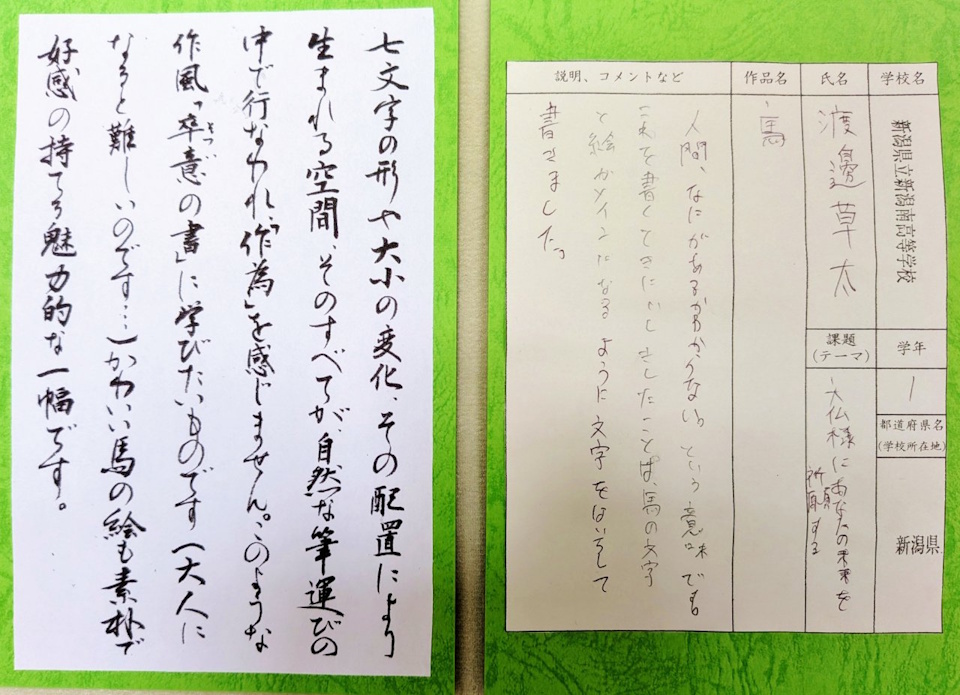 七文字の形や大小の変化、その配置により
生まれる空間、そのすべてが、自然な筆運びの
中で行なわれ、「作為」を感じません。このような
作風「卒意の書」に学びたいものです(大人に
そつい
なると難しいのです…)かわいい馬の絵も素朴で
好感の持てる魅力的な一幅です。
学校名
新潟県立新潟南高等学校
学年
1
都道府県名
(学校所在地)
新潟県
氏名
渡邉草太
課題
(テーマ)
大仏様にあなたの未来を
祈願する
作品名
馬
説明、コメントなど
人間、なにがあるか分からない。という意味です。
これを書くときにいしきしたことは、馬の文字
と絵がメインになるように文字をはいちして
書きました。